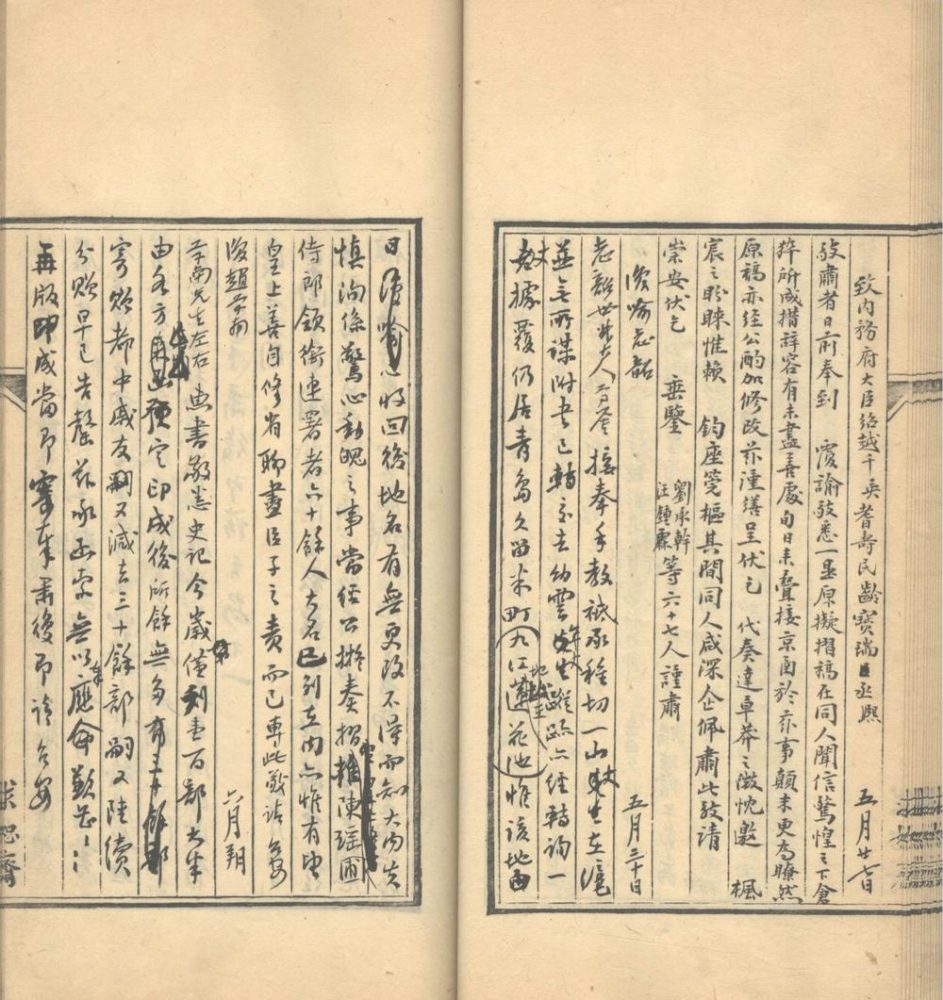 致內務府大臣紹越千英耆壽民齡寶瑞臣丞熙 五月廿七日
敬肅者日前奉到 覆諭敬悉一是原擬摺稿在同人聞信驚惶之下倉
猝所成措辭容有未盡善處旬日來疊接京函於亦事顛末更為瞭然
原稿亦經公酌加修改亦謹繕呈伏乞 代奏達草莽之微忱邀 楓
宸之盼睞惟賴 鈞座筦樞其間同人咸深企佩肅此敬請
崇安伏乞 垂鑒 劉承幹 汪鍾霖 等六十七人謹肅
復喻志韶 五月三十日
志韶世丈大人 接奉手教祗承種切一山 先生在滬
並無所謀附去已轉至去幼雲 先生蹤跡亦經轉詢一
丈據覆仍居青島久留米町九江蓮花池 地址 惟該地西
日 收回後地名有無更改不得而知大內失
慎洵係驚心動魄之事當經公擬奏摺推陳瑤圃
侍郎領銜連署者六十餘人大名已列在內亦惟有望
皇上善自修省聊盡臣子之責而已專此敬請台安
復趙芊南 六月朔
芊南先生左右 惠書敬悉史記今歲僅刻壹百部大半
由各方 預定印成後所餘無多有
寄贈都中戚友嗣又減去三十餘部嗣又陸續
分贈早已告罄茲承函索無以應命歉甚〻〻
再版印成當即 奉肅復即請台安
求恕齋